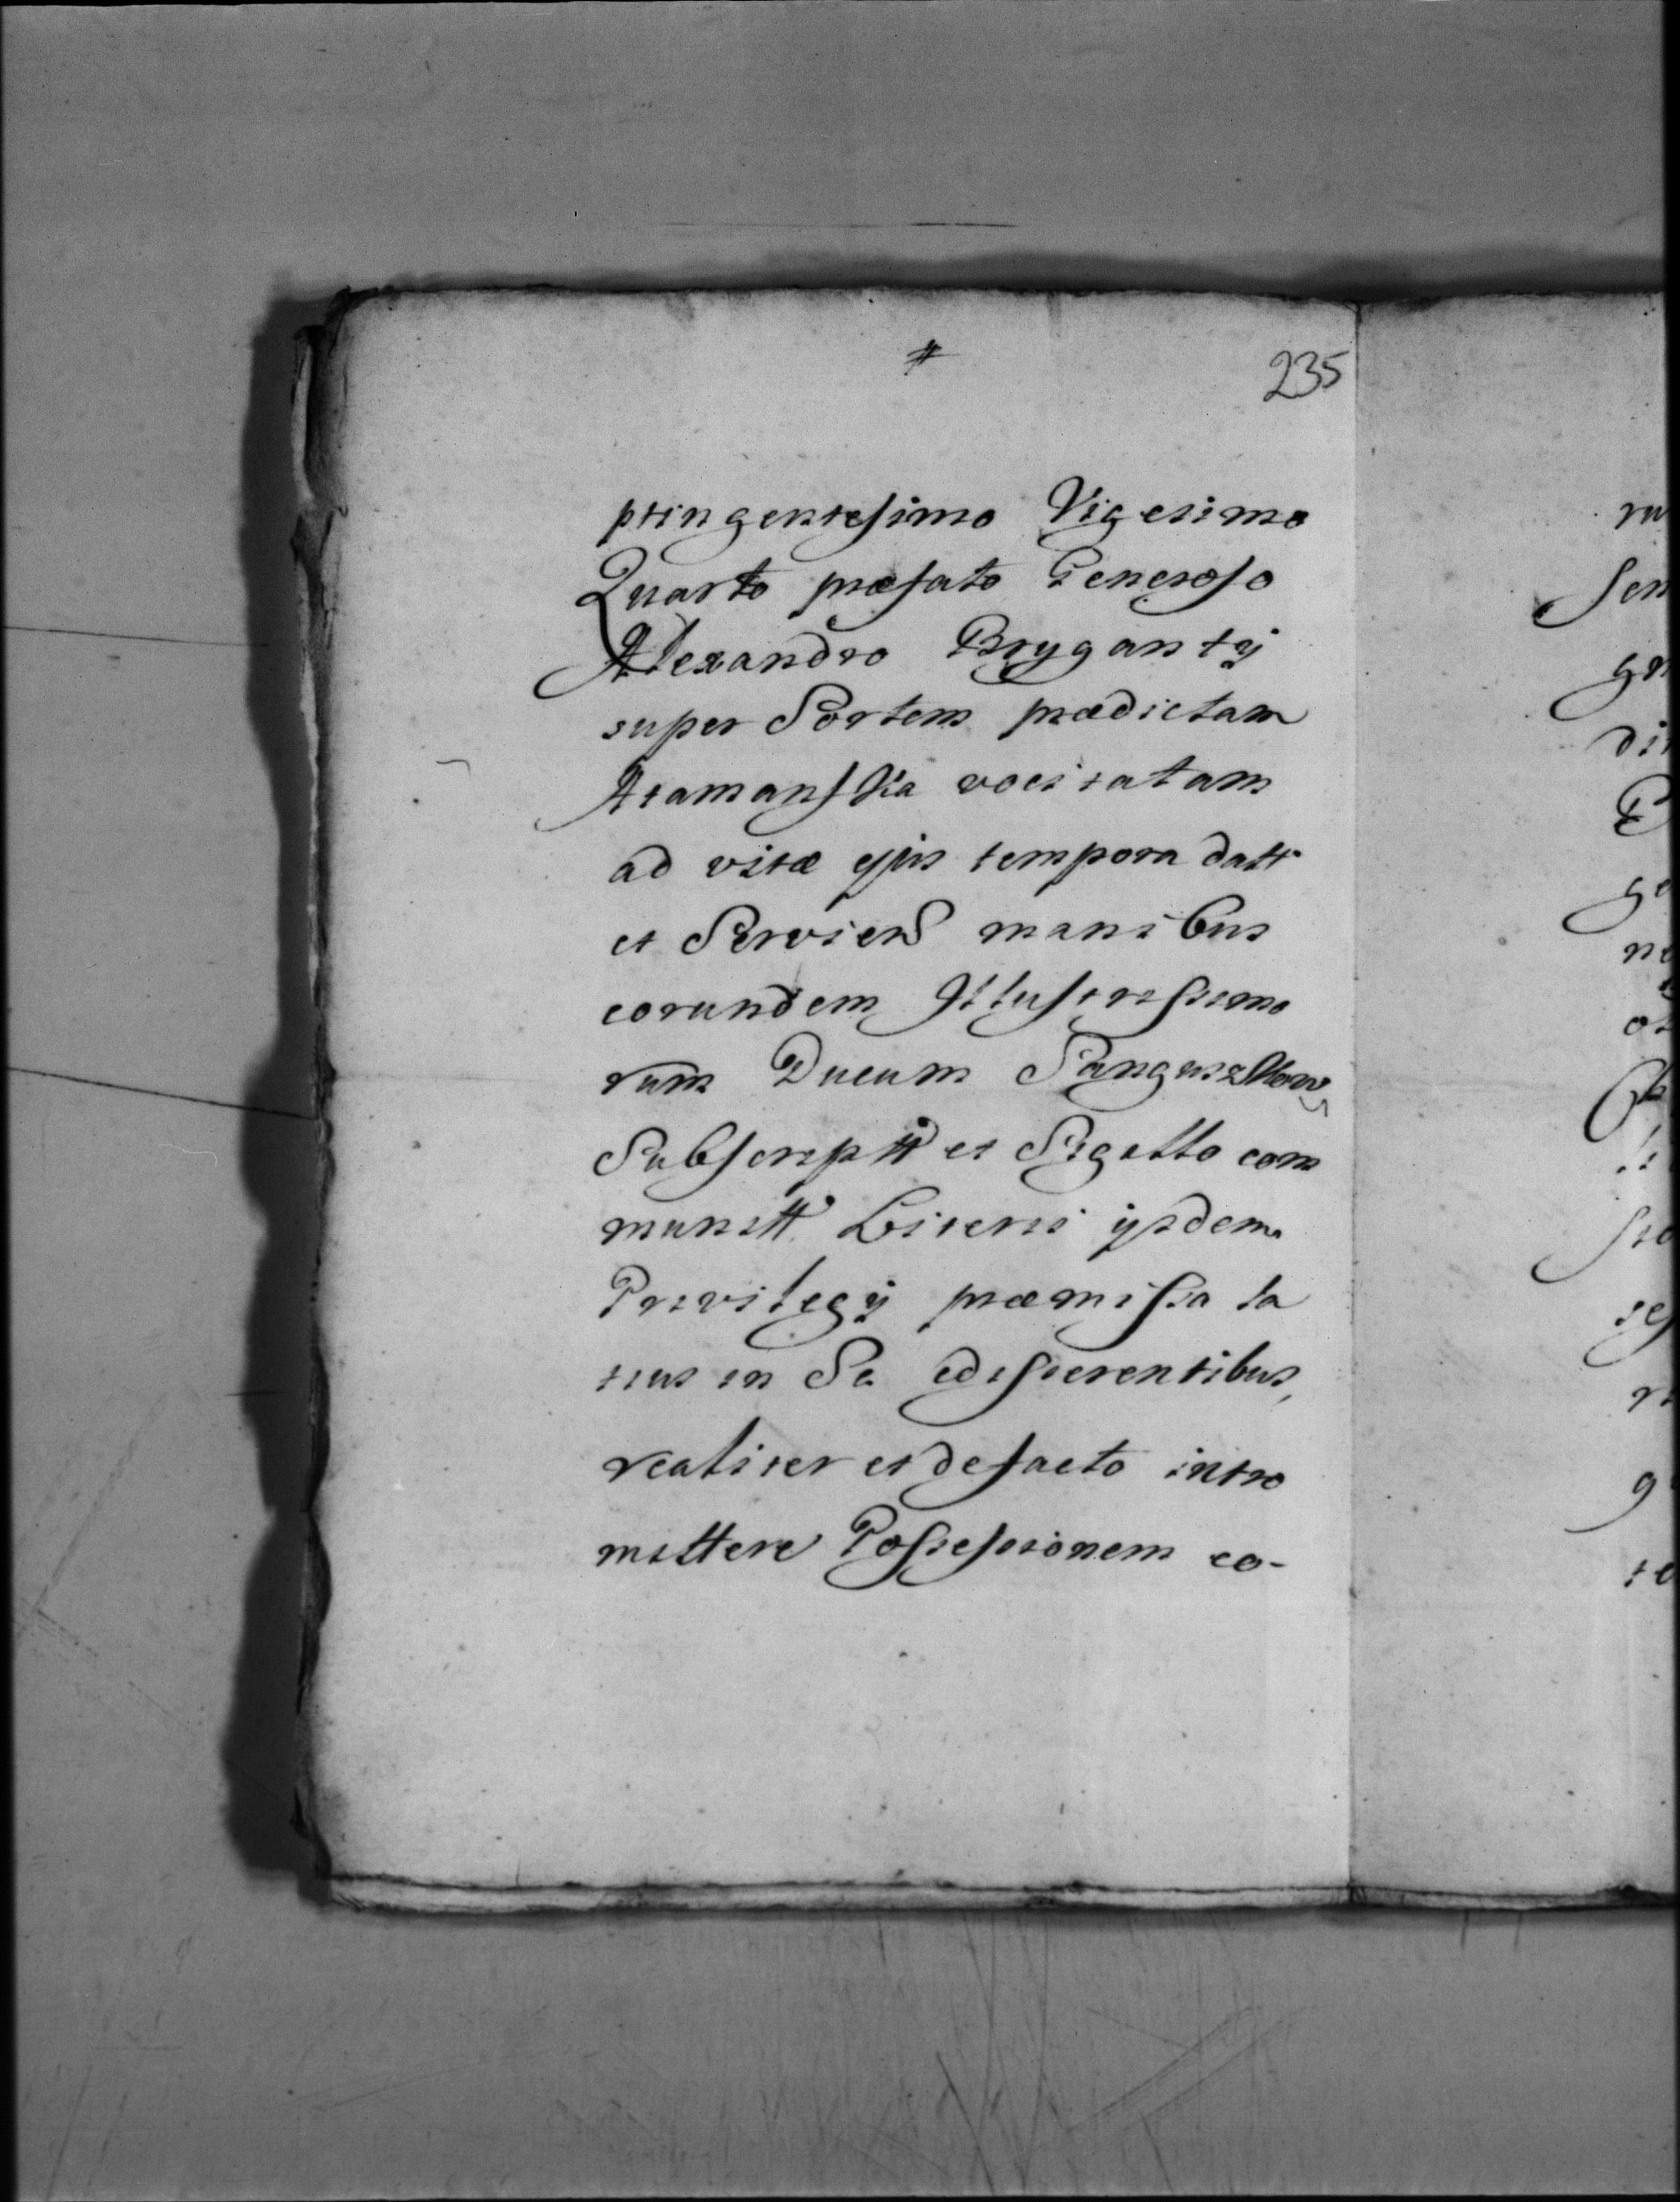 #
235
ptingentesimo Vigesimo
Quarto præfato Generoso
Alexandro Brygantÿ
super Sortem prædictam
Atamanska vocitatam
ad vitæ ejus tempora datt
et Serviend manibus
eorundem Illustrissimo
rum Ducum Sanguszkow
Subscriptt et Sigillo com
munitt Literis ijsdem
Privilegÿ præmissa la
tius in Se edisserentibus,
realiter et defacto intro
mittere Possessionem eo-